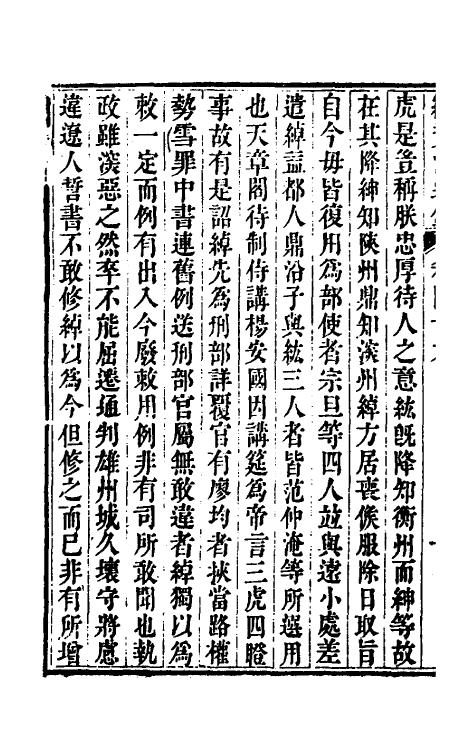 虎是豈稱朕忠厚待人之意紘既降知衡州而紳等故
在其降紳知陝州鼎知深州綽方居喪俟服除日取旨
自今毋皆復用爲部使者宗旦等四人竝與遠小處差
遣綽益都人鼎沿子與紘三人者皆范仲淹等所選用
也天章閣待制侍講楊安國因講筵爲帝言三虎四瞪
事故有是詔綽先爲刑部詳覆官有廖均者挾當路權
勢雪罪中書連舊例送刑部官屬無敢違者綽獨以爲
敕一定而例有出入今廢敕用例非有司所敢聞也執
政雖深惡之然卒不能屈遷通判雄州城久壞守將慮
違遼人誓書不敢修綽以爲今但修之而已非有所增